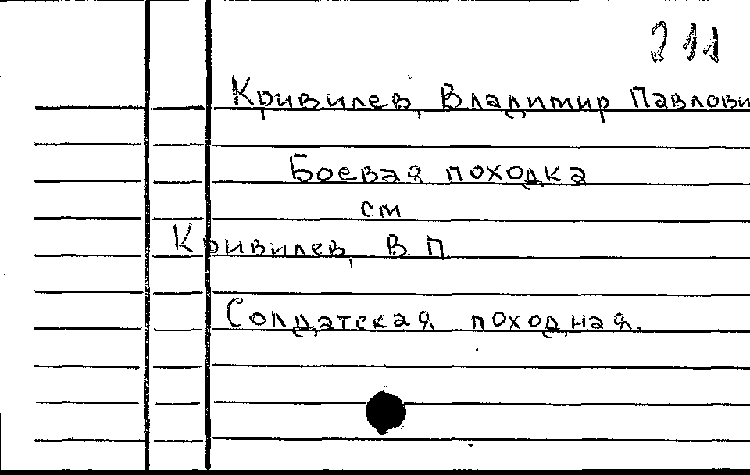 211
Кривилев, Владимир Павлови
Боевая походка
см
Кривилев, В П
Солдатская походная.